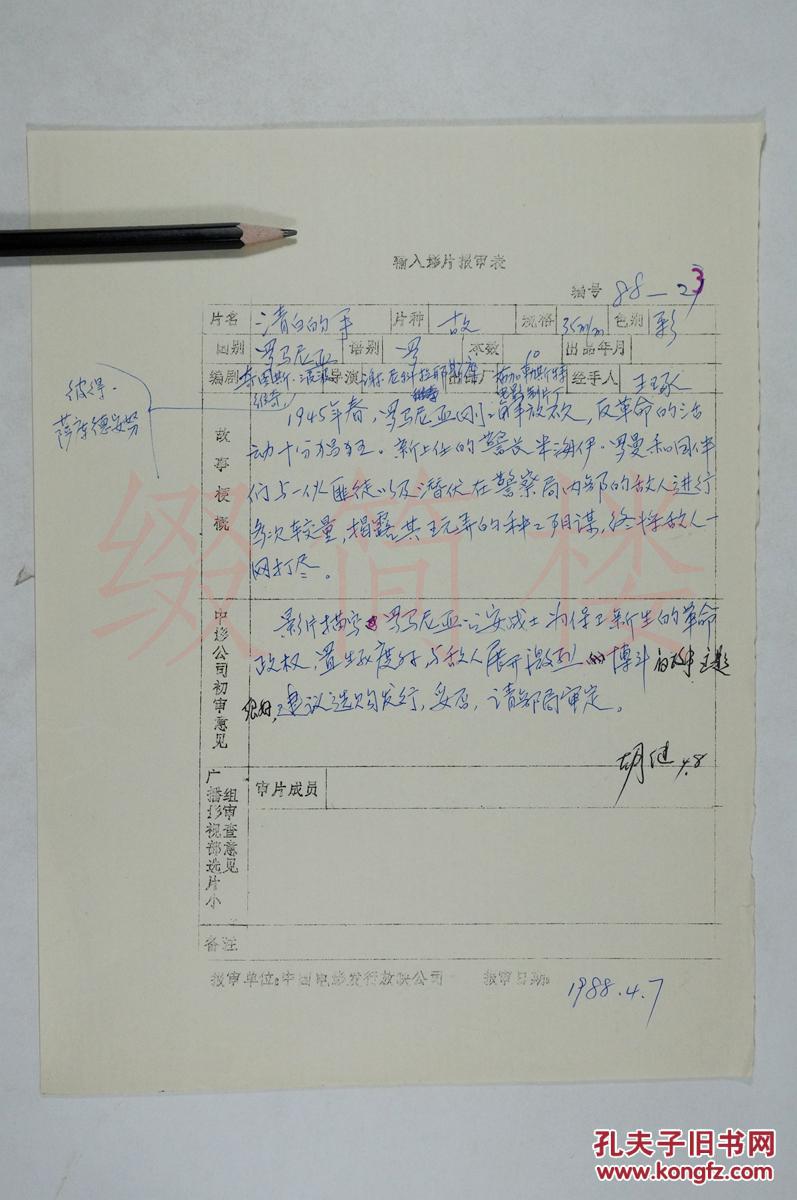 输入影片报审表
编号 88—23
片名 清白的手 片种 故 规格 35m/m 色别 彩
国别 罗马尼亚 语别 罗 本数 10 出品年月
编剧 蒂图斯·波波维奇 导演 谢尔盖·尼科拉耶斯库 出品厂 布加勒斯特电影制片厂 经手人 王琢
彼得·
萨度德安努
故事梗概
1945年春,罗马尼亚刚刚解放不久,反革命的活
动十分猖狂。新上任的警长米海伊·罗曼和同伴
们与一伙匪徒以及潜伏在警察局内部的敌人进行
多次较量,揭露其玩弄的种种阴谋,终将敌人一
网打尽。
中影公司初审意见
影片描写罗马尼亚公安战士为保卫新生的革命
政权,置生死度外与敌人展开激烈的博斗的故事主题
很好,建议选购发行,妥否,请部局审定。
胡健 4.8
广播影视部选片小组审查意见
审片成员
备注
报审单位:中国电影发行放映公司 报审日期: 1988.4.7
缀简楼
孔夫子旧书网
www.kongfz.com